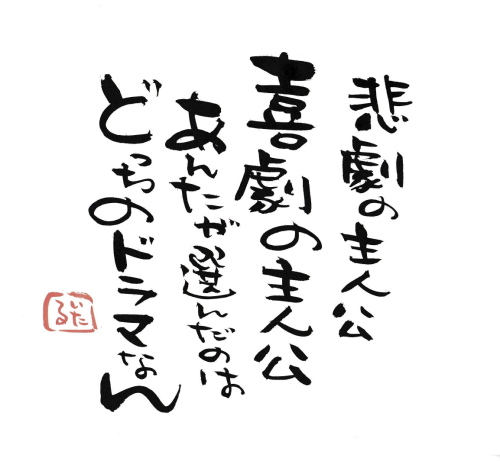 悲劇の主人公
喜劇の主人公
あんたが選んだのは
どっちのドラマなん